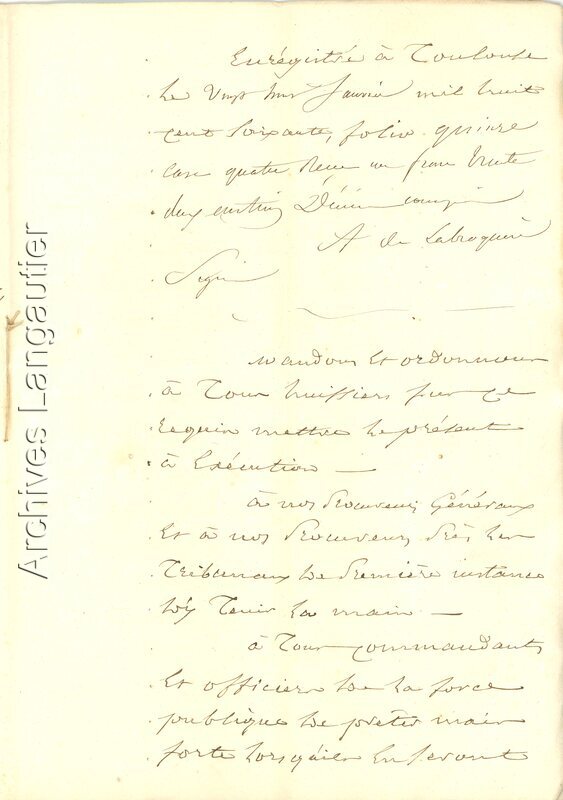 Enrégistré à Toulouse
le Vingt huit Janvier mil huit
cent soixante, folio quinze
case quatre Reçu un franc trente
deux centimes Décime compris
A de Labroquère
Signé
Mandons et ordonnons
à Tous huissiers sur ce
requis mettre le présent
à Exécution —
à nos Procureurs Généraux
Et à nos Procureurs près les
Tribunaux de première instance
d'y Tenir la main —
à Tous commandants
Et officiers de la force
publique de prêter main
forte lorsqu'ils En seront
Archives Langautier